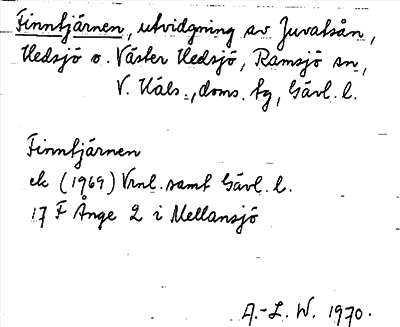 Finntjärnen, utvidgning av Juvatsån,
Hedsjö o. Väster Hedsjö, Ramsjö sn,
V. Häls., doms. tg, Gävl. l.
Finntjärnen
ek (1969) Vrnl. samt Gävl. l.
17 F Ånge 2 i Mellansjö
A.-L. W. 1970.